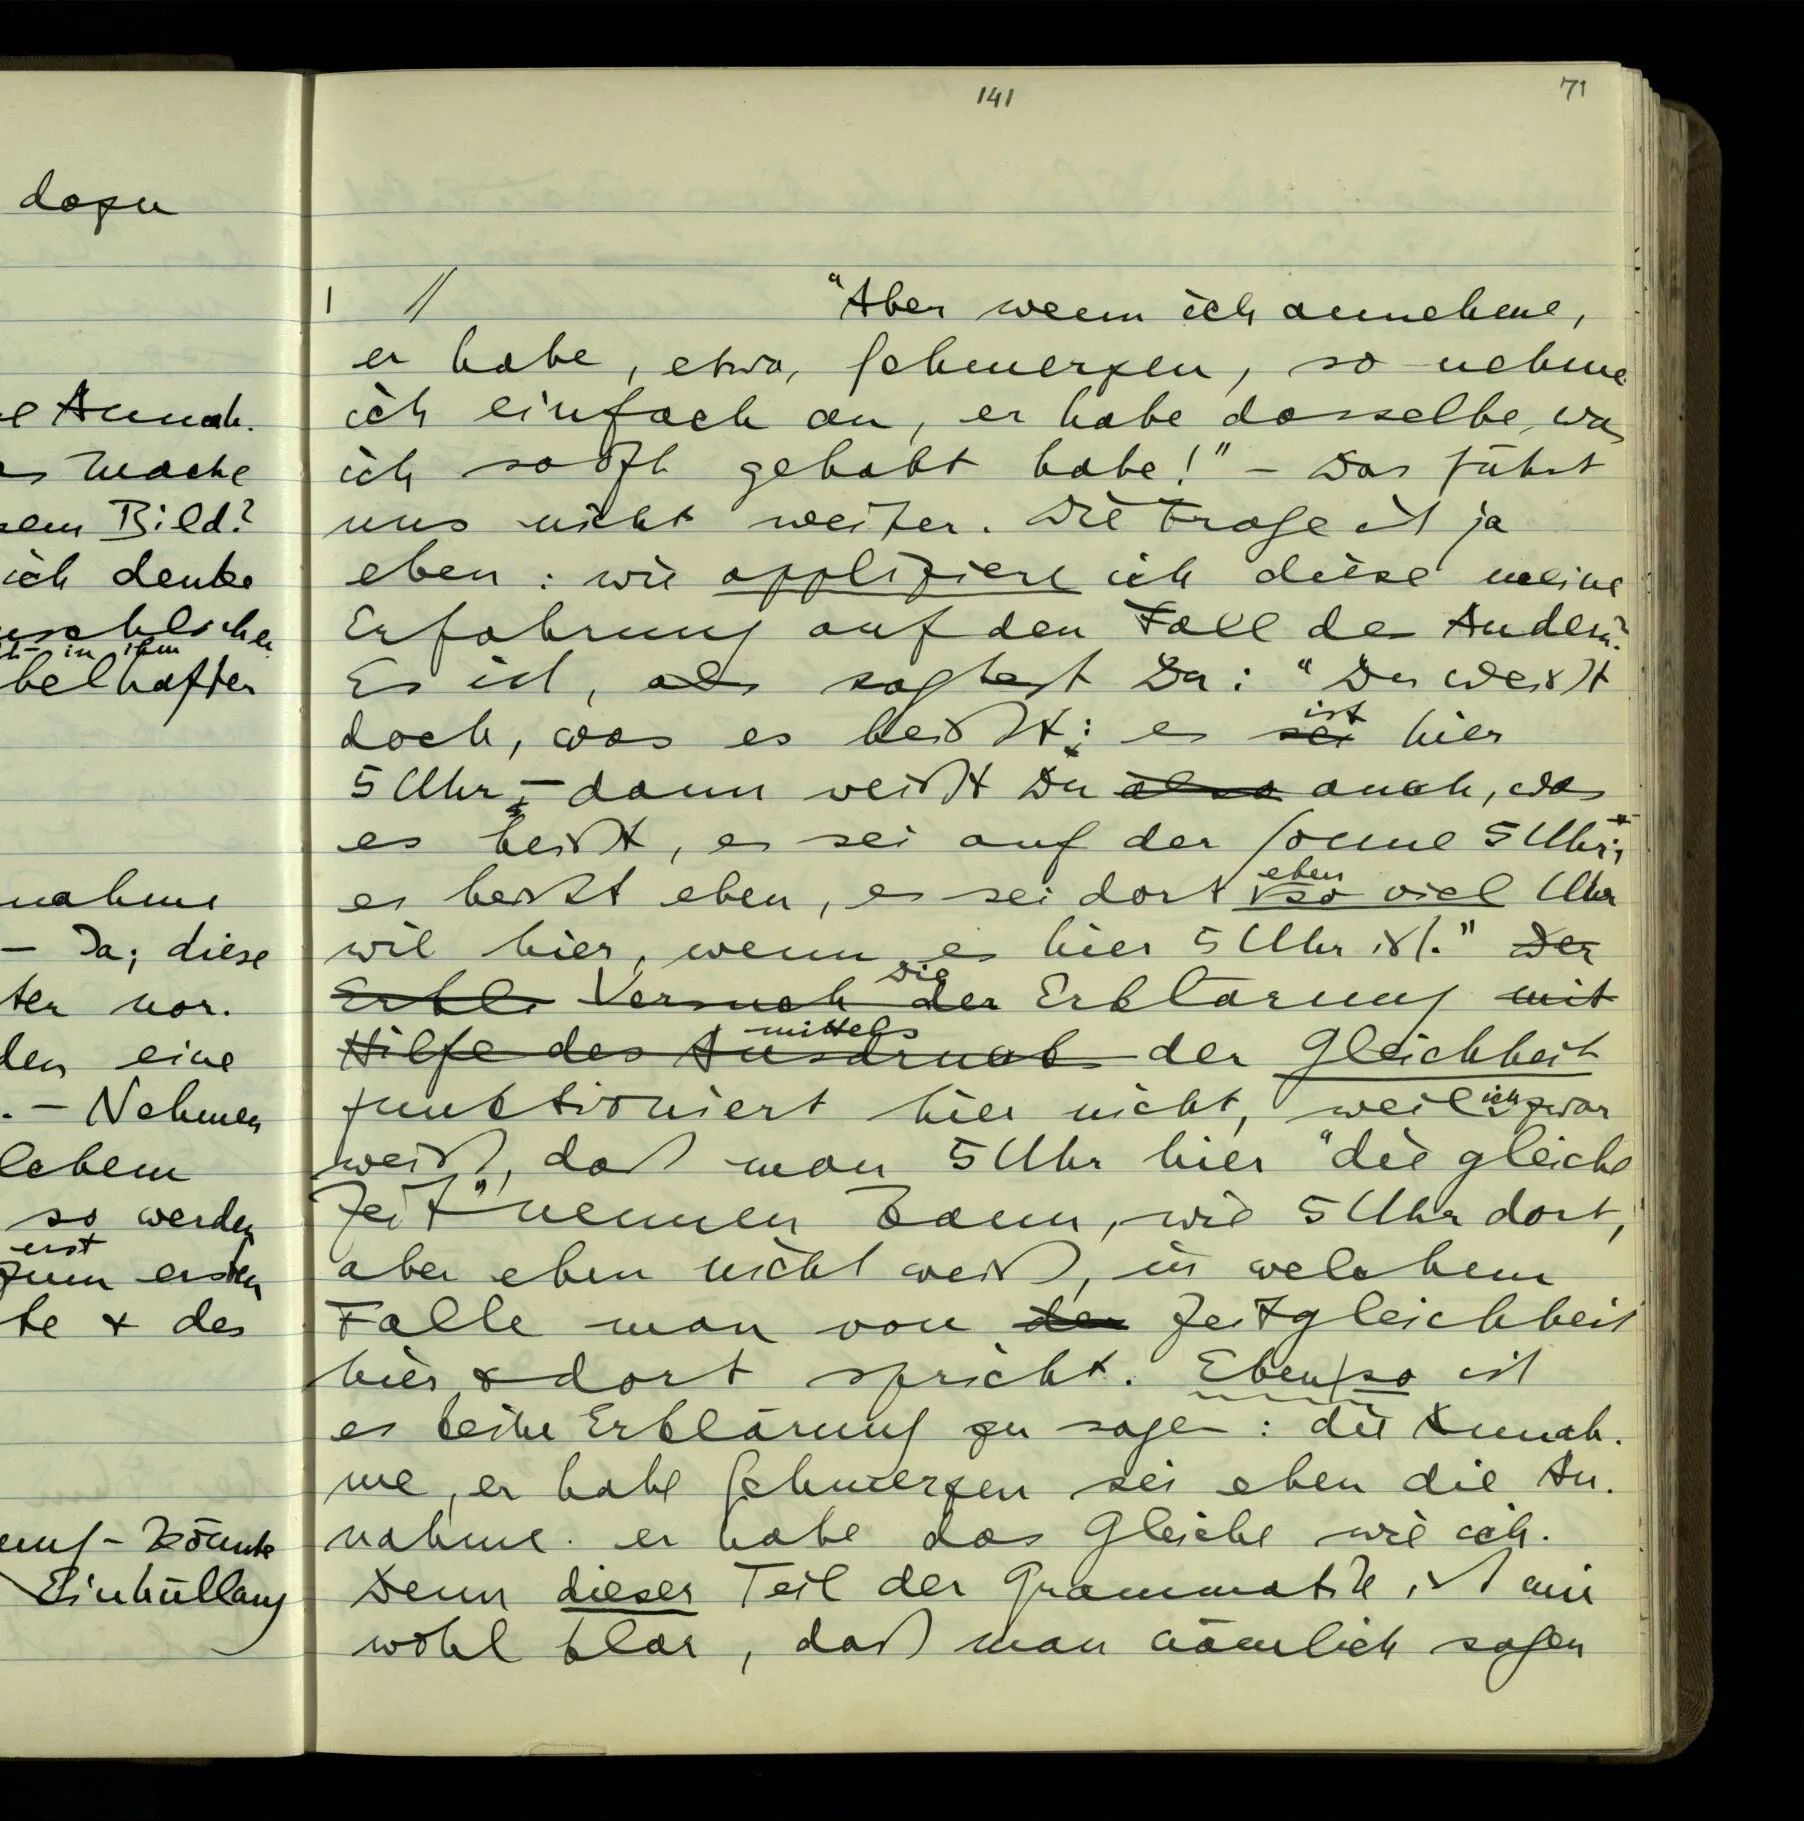 dazu
Annah-
mache
Bild?
ich denke
in ihm
belhafter
nahme
– Ja; diese
ter vor.
den eine
. – Nehmen
so werden
erst
zum ersten
te & des
könnte
Einhüllung
141
71
| // "Aber wenn ich annehme,
er habe, etwa, Schmerzen, so nehme
ich einfach an, er habe dasselbe, was
ich so oft gehabt habe!" – Das führt
uns nicht weiter. Die Frage ist ja
eben: wie appliziere ich diese meine
Erfahrung auf den Fall des Andern?
Es ist, als sagtest Du: "Du weißt
doch, was es heißt: es sei ist hier
5 Uhr; – dann weißt Du also auch, was
es heißt, es sei auf der Sonne 5 Uhr;
es heißt eben, es sei dort eben so viel Uhr
wie hier, wenn es hier 5 Uhr ist." Der
Erklä Versuch der Die Erklärung mit
Hilfe des Ausdruck mittels der Gleichheit
funktioniert hier nicht, weil ich zwar
weiß, daß man 5 Uhr hier "die gleiche
Zeit" nennen kann, wie 5 Uhr dort,
aber eben nicht weiß, in welchem
Falle man von der Zeitgleichheit
hier & dort spricht. Eben/so ist
es keine Erklärung zu sagen: die Annah-
me, er habe Schmerzen sei eben die An-
nahme er habe das Gleiche wie ich.
Denn dieser Teil der Grammatik ist mir
wohl klar, daß man nämlich sagen